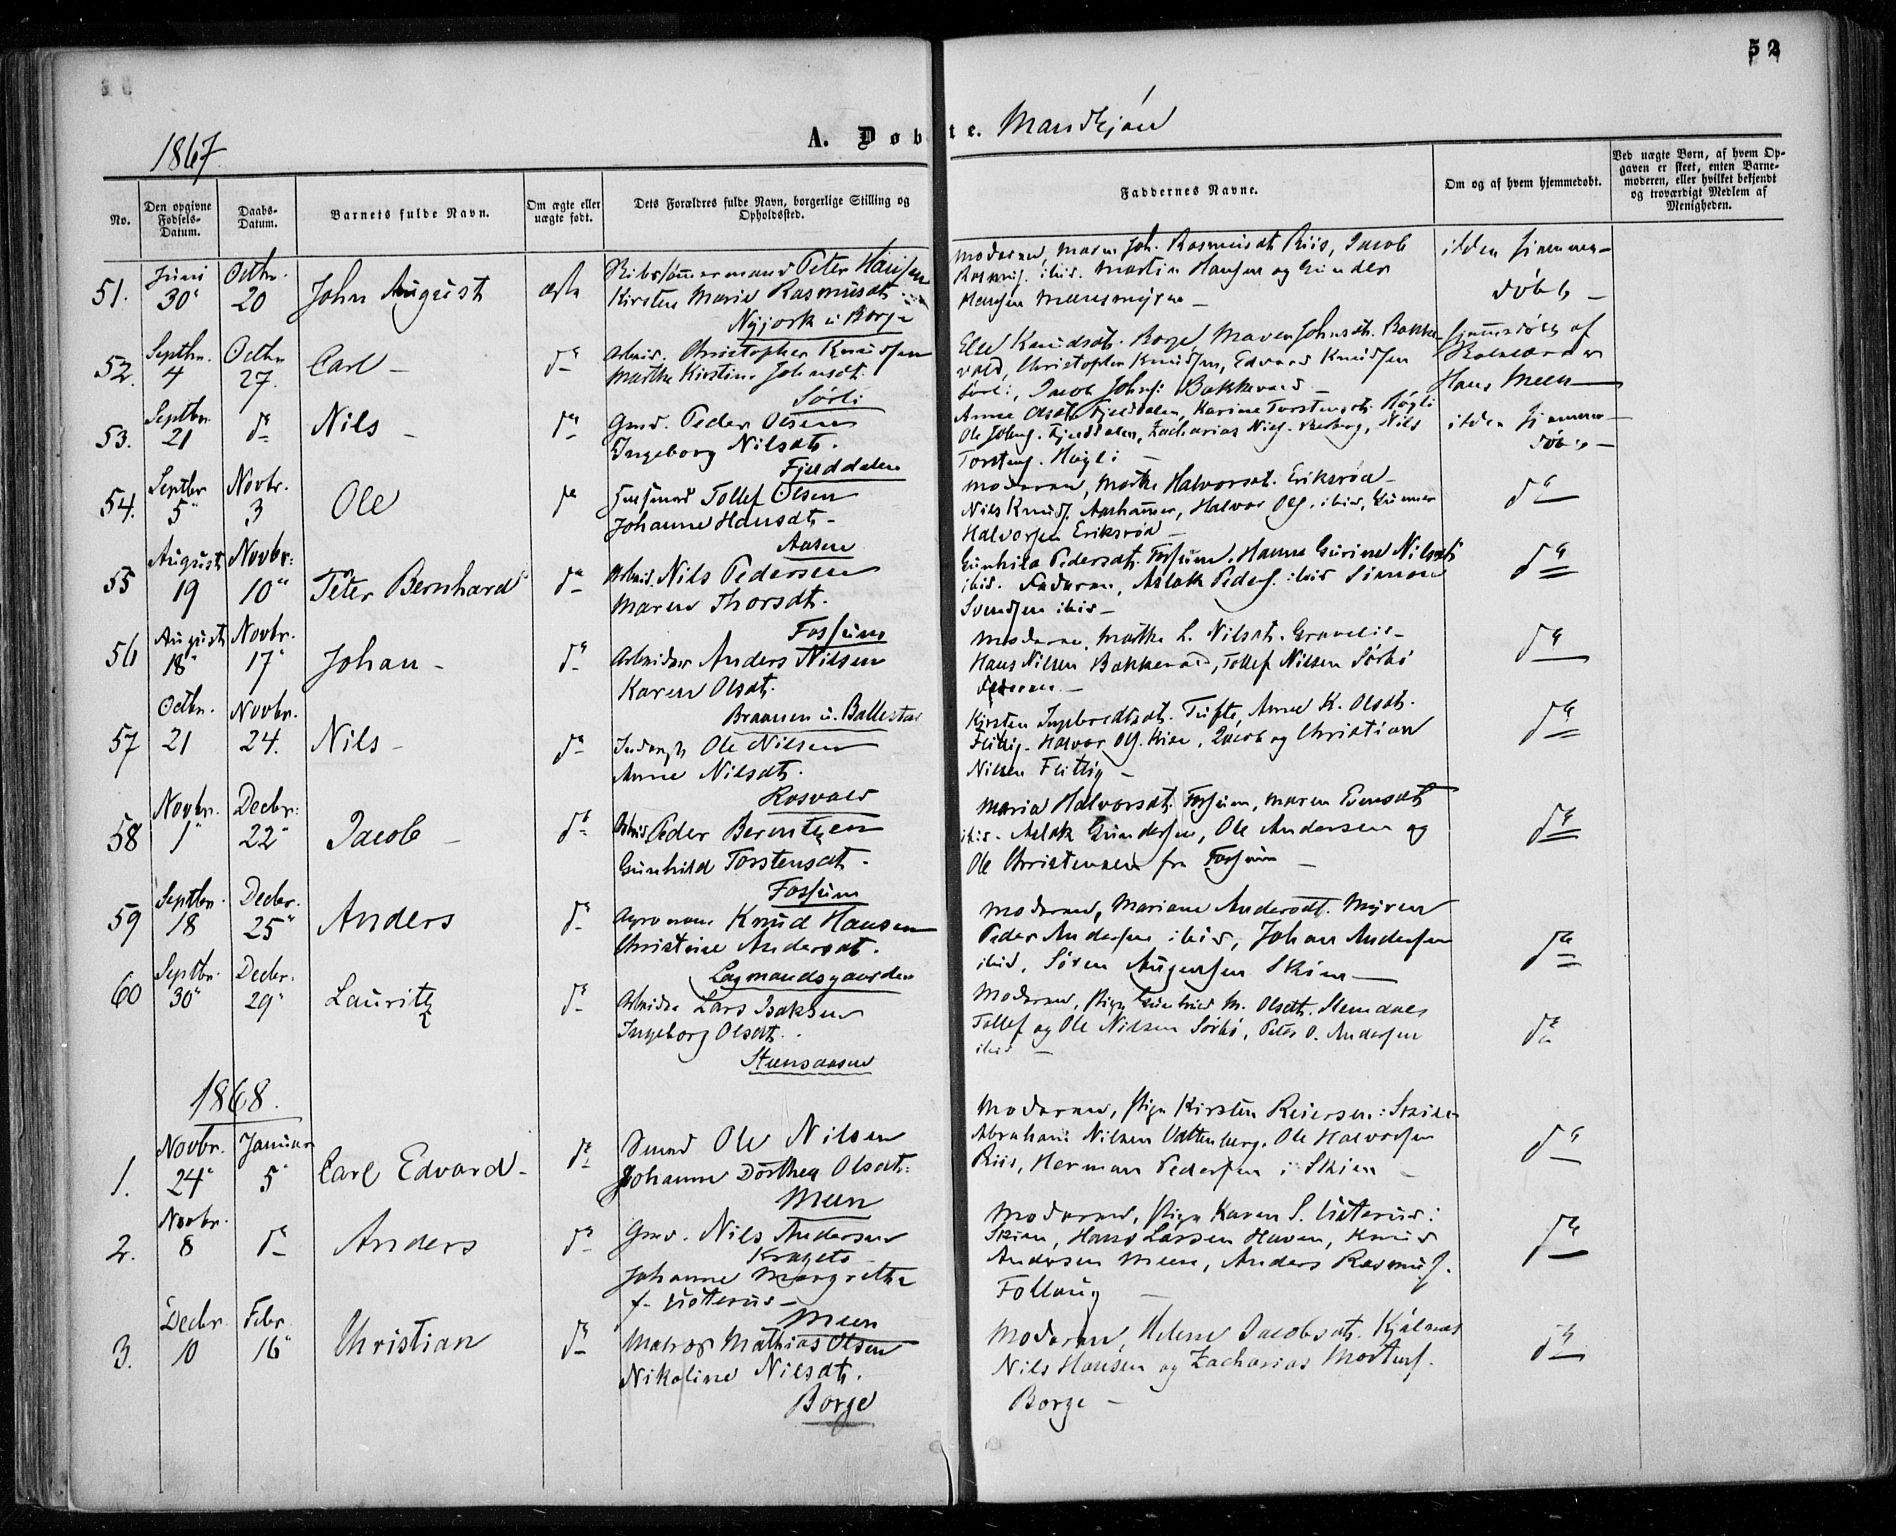 52
1867.
A. Døbte. Mandkjøn
No.
Den opgivne Fødsels-Datum.
Daabs-Datum.
Barnets fulde Navn.
Om ægte eller uægte født.
Dets Forældres fulde Navn, borgerlige Stilling og Opholdssted.
Faddernes Navne.
Om og af hvem hjemmedøbt.
Ved uægte Børn, af hvem Opgaven er skeet, enten Barnemoderen, eller hvilket bekjendt og troværdigt Medlem af Menigheden.
51. Juni 30 Octbr. 20 John August ægte
Skibstømmermand Peter Hansen
Kirsten Marie Rasmusdt.
Nyjork u. Borge
Moderen, Maren Joh. Rasmusdt. Riis, Jacob
Rasmus. ibid. Martin Hansen og Gunder
Hansen Meensmyren –
ikke hjemme-
døbt –
52. Septbr. 4 Octbr. 27. Carl – do
Arbeid. Christopher Knudsen
Marthe Kirstine Johnsdt.
Sørli
Else Knudsdt. Borge, Maren Johnsdt. Bakke-
vold, Christopher Knudsen, Edvard Knudsen
Sørli, Jacob Johns. Bakkevold –
hjemmedøbt af
Skolelærer
Hans Meen
53. Septbr. 21 do Nils – do
Gmd. Peder Olsen
Ingeborg Nilsdt.
Fjelddalen
Anne Olsdt. Fjelddalen, Karine Torstensdt. Høgli
Ole Johns. Fjelddalen, Zacharias Niels. Nils
Torstens. Høgli –
ikke hjemme-
døbt –
54. Septbr. 5 Novbr. 3 Ole do
Husmand Tollef Olsen
Johanne Hansdt. –
Aasen
Moderen, Marthe Halvorsdt. Eriksrød –
Nils Knuds. Aarhammer, Halvor Ols. ibid, Gunner
Halvorsen Eriksrød –
do
55 August 19 Novbr. 10 Peter Bernhard do
Arbeid. Nils Pedersen
Maren Thorsdt.
Fossum
Gunhild Pedersdt. Fossum, Hanne Gurine Nilsdt.
ibid. Faderen, Aslak Peders. ibid Simon
Svendsen ibid –
do
56 August 18 Novbr. 17 Johan – do
Arbeider Anders Nilsen
Karen Olsdt.
Braanen u. Ballestad
Moderen, Marthe L. Nilsdt. Gravlie –
Hans Nilsen Bakkevold, Tollef Nilsen Sørbø
Faderen –
do
57 Octbr. 21 Novbr. 24. Nils – do
Inderst Ole Nilsen
Anne Nilsdt.
Rosvald
Kirsten Ingebredtsdt. Tufte, Anne K. Olsdt.
Flittig – Halvor Ols. Kise, Jacob og Christian
Nilsen Flittig –
do
58 Novbr. 1 Decbr. 22 Jacob – do
Arbeid Peder Berentsen
Gunhild Torstensdt.
Fossum
Maria Halvorsdt. Fossum, Maren Evensdt.
ibid. Aslak Gundersen, Ole Andersen og
Ole Christensen fra Fossum –
do
59 Septbr. 18 Decbr. 25 Anders do
Knud Hansen
Christine Andersdt.
Lagmandsgaarden
Moderen, Mariane Andersdt. Myren
Peder Andersen ibid, Johan Andersen
ibid, Søren Augensen Skien –
do
60 Septbr. 30 Decbr. 29 Lauritz do
Arbeider Lars Isaksen
Ingeborg Olsdt.
Steensaasen
Moderen, Pige Gunhild M. Olsdt. Stensaas
Tollef og Ole Nilsen Sørbø, Peter O. Andersen
ibid –
do
1868.
1. Novbr. 24 Januar 5 Carl Edvard – do
Smed Ole Nilsen
Johanne Dorthea Olsdt.
Meen
Moderen, Pige Kirsten Reiersen: Skien
Abraham Nilsen Vattenberg, Ole Halvorsen
Riis, Herman Pedersen i Skien –
do
2. Novbr. 8 do Anders do
Gmd. Nils Andersen
Krageto
Johanne Margrethe
f. Utterud –
Meen
Moderen, Pige Karen S. Utterud:
Skien, Hans Larsen Haven, Knud
Andersen Meen, Anders Rasmus.
Follaug –
do
3. Decbr. 10 Febr. 16 Christian do
Matros Mathias Olsen
Nikoline Nilsdt.
Borge
Moderen, Helene Jacobsdt. Kjølnes
Nils Hansen og Zacharias Mortens.
Borge –
do